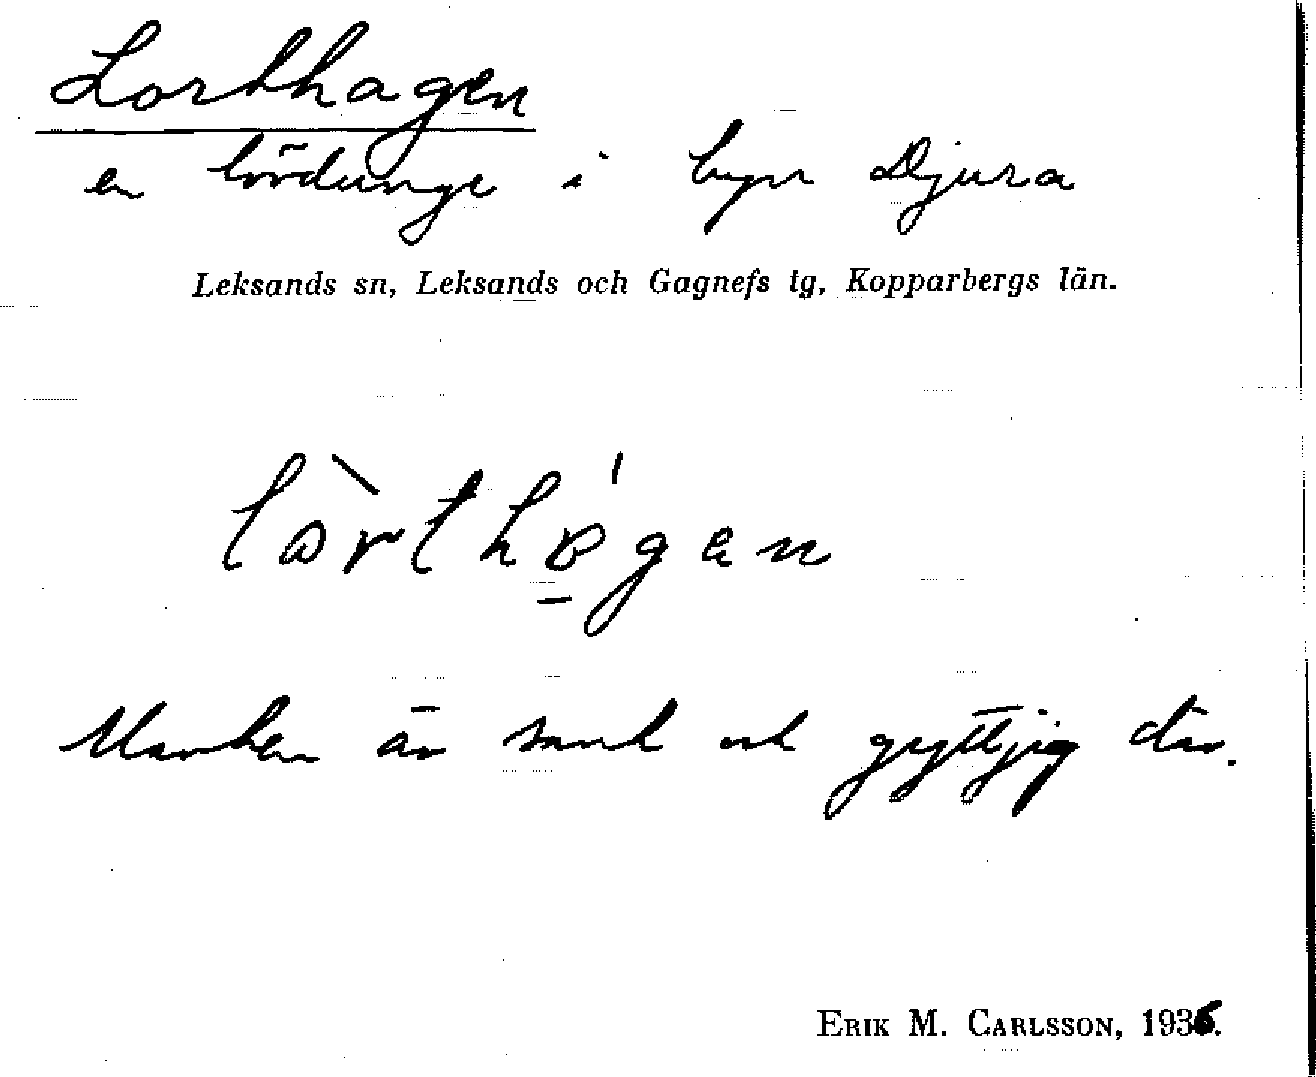 Lorthagen
en lördunge i byn Djura
Leksands sn, Leksands och Gagnefs tg, Kopparbergs län.
lòrthɒ̱́gen
Marken är sank och gyttjig där.
ERIK M. CARLSSON, 1936.